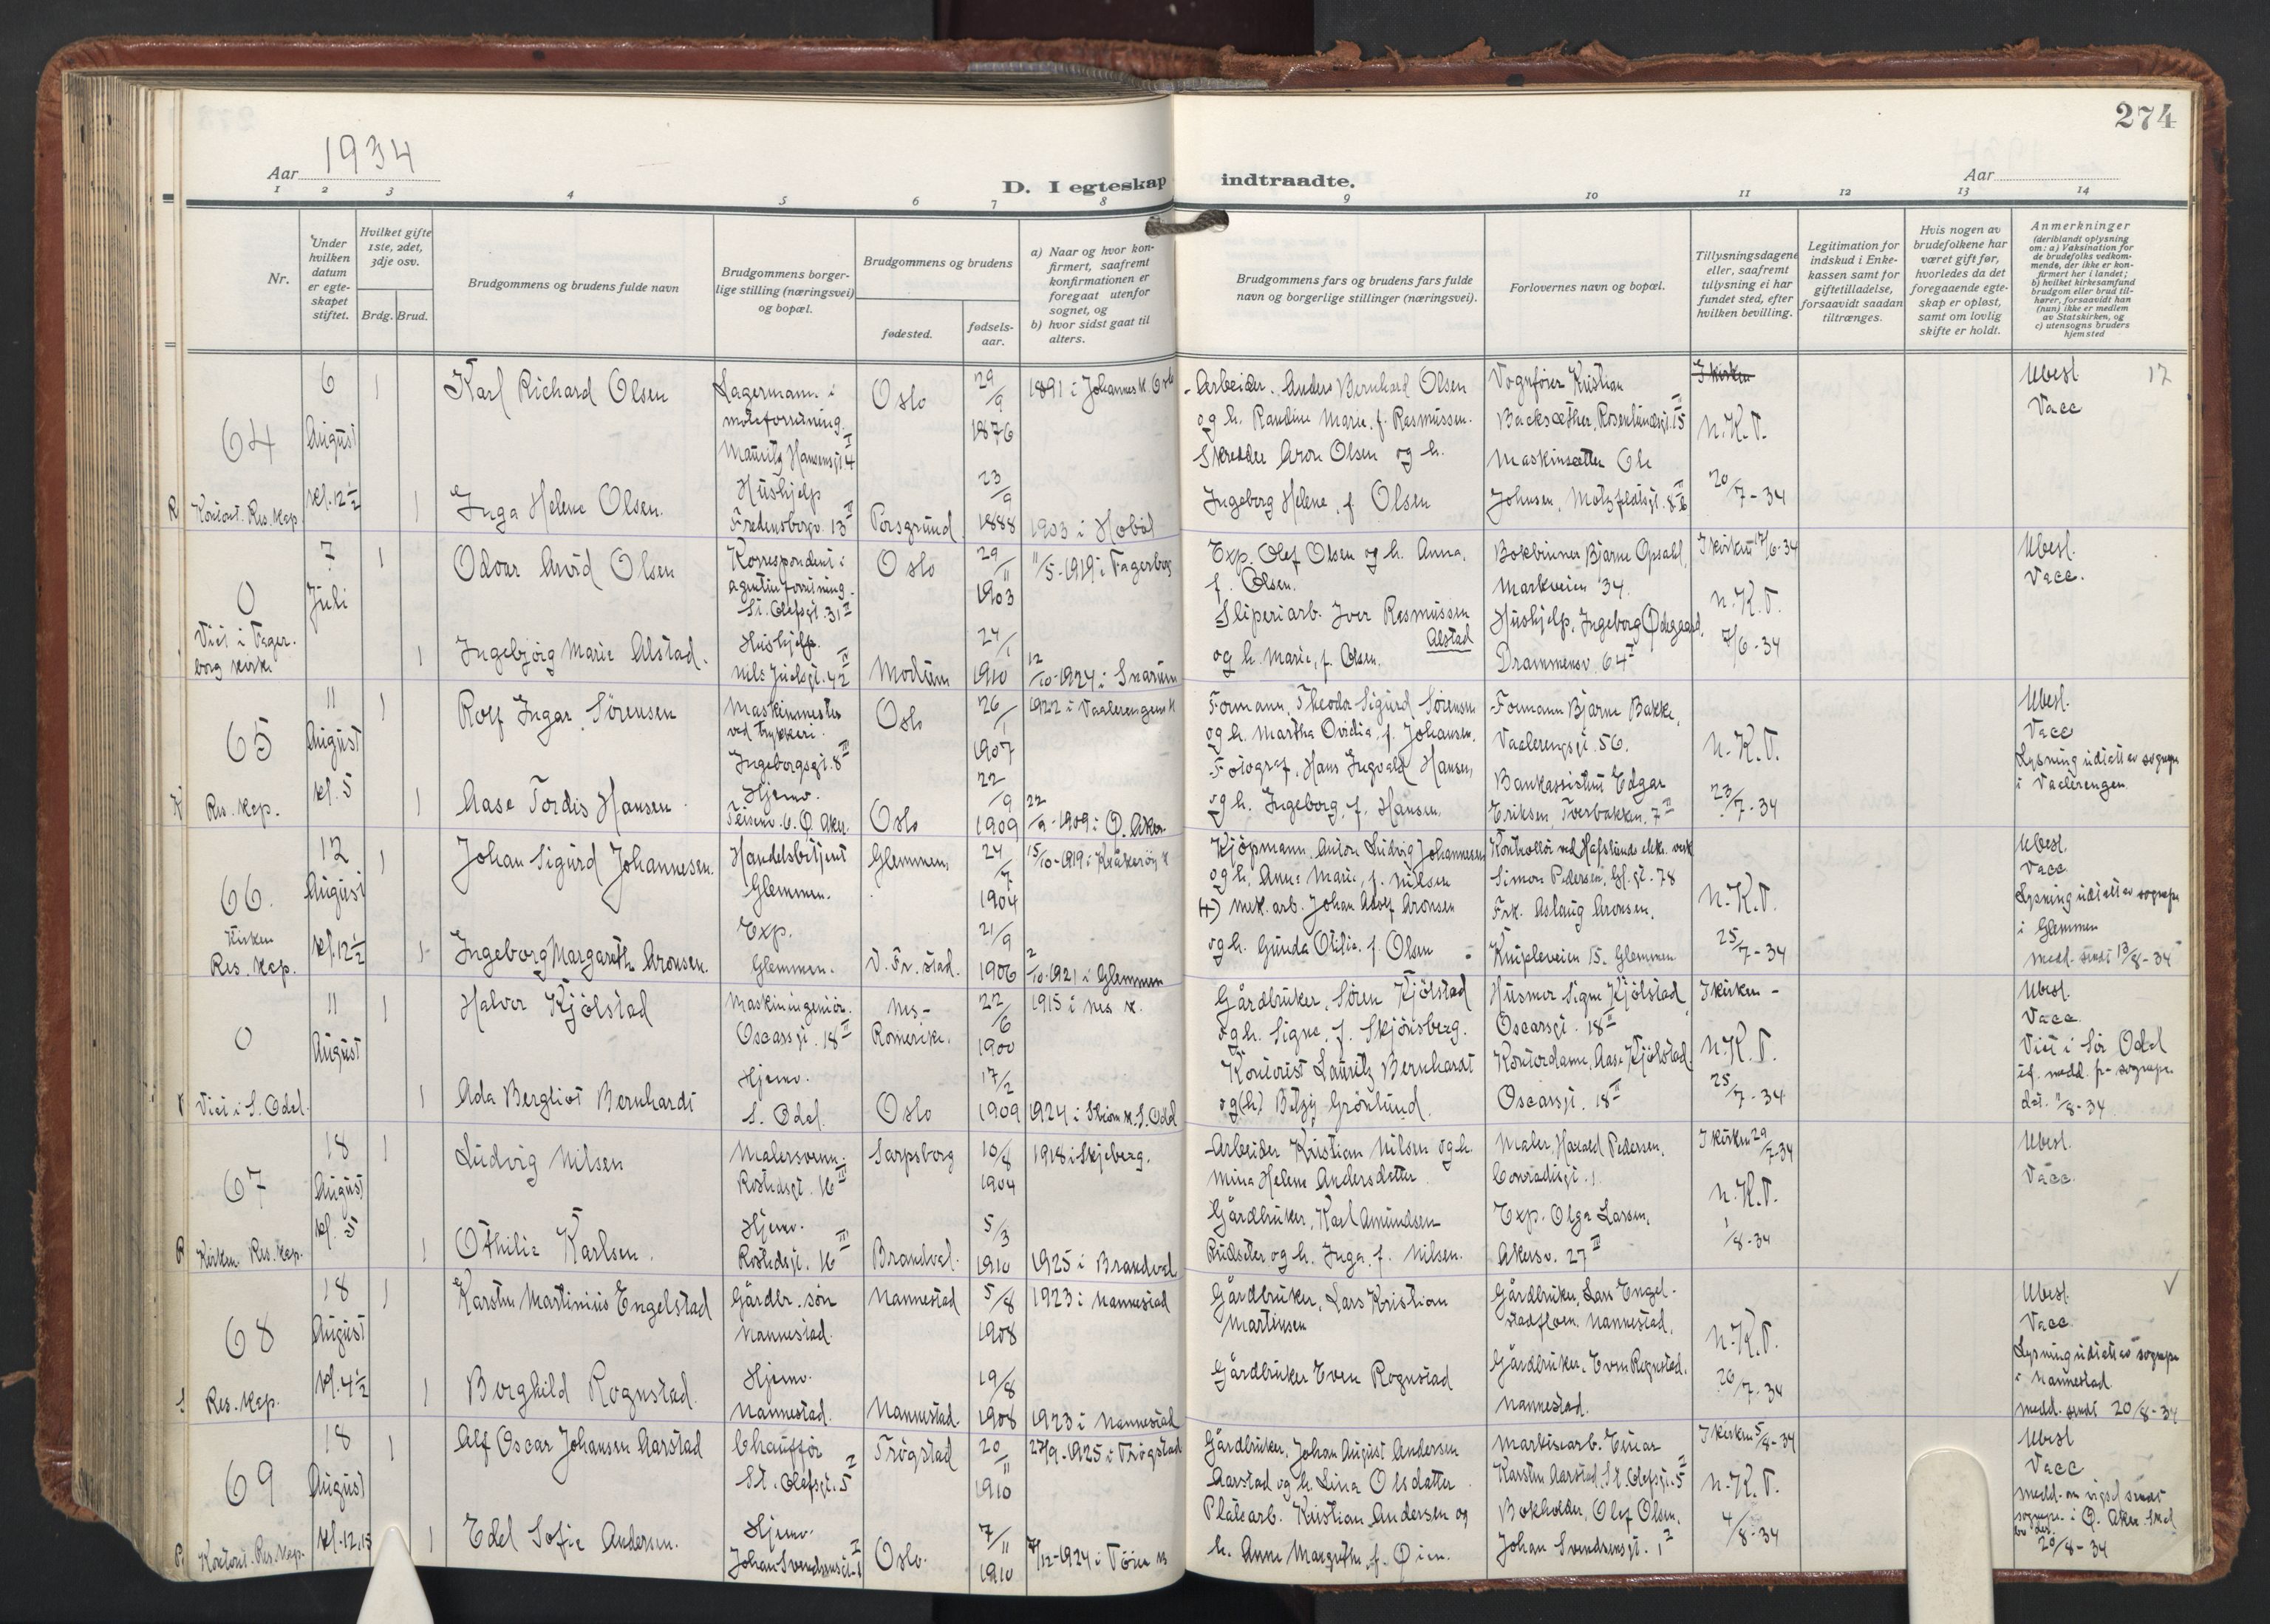 274
Aar 1934
D. I egteskap indtraadte.
Aar
1 2 3 4 5 6 7 8 9 10 11 12 13 14
Nr.
Under hvilken datum er egteskapet stiftet.
Hvilket gifte 1ste, 2det, 3dje osv.
Brdg. Brud.
Brudgommens og brudens fulde navn
Brudgommens borgerlige stilling (næringsvei) og bopæl.
Brudgommens og brudens
fødested.
fødselsaar.
a) Naar og hvor konfirmert, saafremt konfirmationen er foregaat utenfor sognet, og
b) hvor sidst gaat til alters.
Brudgommens fars og brudens fars fulde navn og borgerlige stillinger (næringsvei).
Forlovernes navn og bopæl.
Tillysningsdagene eller, saafremt tillysning ei har fundet sted, efter hvilken bevilling.
Legitimation for indskud i Enkekassen samt for giftetilladelse, forsaavidt saadan tiltrænges.
Hvis nogen av brudefolkene har været gift før, hvorledes da det foregaaende egteskap er opløst, samt om lovlig skifte er holdt.
Anmerkninger
(deriblandt oplysning om: a) Vaksination for de brudefolks vedkommende, der ikke er konfirmert her i landet;
b) hvilket kirkesamfund brudgom eller brud tilhører, forsaavidt han (hun) ikke er medlem av Statskirken, og
c) utensogns bruders hjemsted
64
Kontort. Res. Kap.
6 August kl. 12 1/2
1
Karl Richard Olsen
Lagermann i
Mauritz Hansensgt 4 I
Oslo
29/9 1876
1891 i Johannes k. Oslo
Arbeider Anders Bernhard Olsen
og h. Randine Marie, f. Rasmussen.
Vognfører Kristian
Backsæther, Rosenlundsgt. 15 II
I kirken
N.K.T.
20/7-34
Ubesl.
Vacc
17
1
Inga Helene Olsen.
Hushjelp
Fredensborgv. 13 III
Porsgrund
23/9 1888
1903 i Hobøl
Skredder Aron Olsen og h.
Ingeborg Helene, f. Olsen
Maskinsetter Ole
Johnsen, Motzfeldtsgt. 8 b
0
Viet i Fagerborg kirke
7 Juli
1
Odvar Arvid Olsen
Korrespondent i
agenturforretning.
St. Olafsgt. 31 II
Oslo
29/11 1903
11/5-1919 i Fagerborg
Exp. Olaf Olsen og h. Anna,
f. Olsen.
Bokbinner Bjarne Opsahl,
Markveien 34.
I kirken 17/6-34
N.K.T.
7/6-34
Ubesl.
Vacc.
1
Ingebjørg Marie Alstad.
Hushjelp.
Nils Juelsgt. 42 IV
Modum
24/1 1910
12/10-1924 i Snarum
Sliperiarb. Iver Rasmussen
Alstad
og h. Marie, f. Olsen.
Hushjelp, Ingeborg Ødegaard,
Drammensv. 64 I
65
Res. Kap.
11 August kl. 5
1
Rolf Ingar Sörensen
Maskinmester
ved trykkeri.
Ingeborgsgt. 8 III
Oslo
26/1 1907
1922 i Vaalerengens k
Formann, Theodor Sigurd Sörensen
og h. Martha Ovidia, f. Johansen.
Formann Bjarne Bakke,
Vaalerengsgt. 56.
N.K.T.
23/7-34
Ubesl.
Vacc
Lysning utstett av sognepr
i Vaalerengen
1
Aase Tordis Hansen
Hjemv.
Teisenv. 6. Ø. Aker.
Oslo
22/9 1909
Ø. Aker
Fotograf, Hans Ingvald Hansen,
og h. Ingeborg, f. Hansen.
Bankassistent Edgar
Eriksen, Tverbakken. 7 II
66
Kirken
Res. Kap.
12 August kl. 12 1/2
1
Johan Sigurd Johannesen.
Handelsbetjent
Glemmen.
Glemmen
24/7 1904
15/10-1919 i Kråkerøy k
Kjöpmann, Anton Ludvig Johannesen
og h. Anna Marie, f. Nilsen
Kontrollör ved Hafslund elektr. verk
Simon Pedersen, Gl. gt. 78
N.K.T.
25/7-34
Ubesl.
Vacc
Lysning utstett av sognepr
i Glemmen
medd. sendt 13/8-34
1
Ingeborg Margareth Aronsen.
Exp.
Glemmen.
V. Fr. stad.
21/9 1906
2/10-1921 i Glemmen
Mek. arb. Johan Adolf Aronsen
og h. Gunda Otilia, f. Olsen
Frk. Aslaug Aronsen,
Knipleveien 15. Glemmen
0
Viet i S. Odal.
11 August
1
Halvor Kjölstad
Maskiningeniör.
Oscarsgt. 18 II
Nes-
Romerike.
22/6 1900
1915 i Nes k.
Gårdbruker, Sören Kjölstad
og h. Signe, f. Skjönsberg.
Husmor Signe Kjölstad,
Oscarsgt. 18 II
I kirken -
N.K.T.
25/7-34
Ubesl.
Vacc.
Viet i Sör Odal
if. medd. fr sognepr.
dat. 11/8-34
1
Ada Bergliot Bernhardt
Hjemv.
S. Odal.
Oslo
17/2 1909
1924 i Ström k. S. Odal
Kontorist Lauritz Bernhardt
og (h) Betzy Grönlund.
Kontordame, Aase Kjölstad,
Oscarsgt. 18 II
67
Kirken. Res. Kap.
18 August kl. 5
1
Ludvig Nilsen
Malersvenn.
Rostedsgt. 16 III
Sarpsborg
10/8 1904
1918 i Skjeberg.
Arbeider Kristian Nilsen og h.
Mina Helene Andersdatter
Maler, Harald Pedersen,
Conradisgt. 1
I kirken 29/7-34
N.K.T.
1/8-34
Ubesl.
Vacc.
1
Othilie Karlsen.
Hjemv.
Rostedsgt. 16 III
Brandval.
5/3 1910
1925 i Brandval
Gårdbruker, Karl Amundsen
Rudseter og h. Inga, f. Nilsen.
Exp. Olga Larsen,
Akersv. 27 III
68
Res. Kap.
18 August kl. 4 1/2
1
Karsten Martinius Engelstad
Gårdbr. sön
Nannestad.
Nannestad
5/8 1908
1923 i Nannestad
Gårdbruker, Lars Kristian
Martinsen
Gårdbruker, Lars Engelstadfloen. Nannestad.
N.K.T.
26/7-34
Ubesl.
Vacc.
Lysning utstett av sognepr
i Nannestad
medd. sendt 20/8-34
1
Borghild Rognstad.
Hjemv.
Nannestad.
Nannestad.
19/8 1908
1923 i Nannestad
Gårdbruker Even Rognstad
Gårdbruker. Even Rognstad.
Nannestad.
69
Kontort. Res. Kap.
18 August kl. 12.15
1
Alf Oscar Johansen Aarstad
Chaufför
St. Olafsgt. 5 I
Trögstad
20/11 1910
27/9-1925 i Trögstad
Gårdbruker, Johan August Andersen
Aarstad og h. Lina Olsdatter
Markisearb. Einar
Karsten Aarstad, St. Olafsgt. 5 I
I kirken 5/8-34
N.K.T.
4/8-34
Ubesl
Vacc
medd. om vigsel sendt
sognepr. i Ø. Aker
20/8-34
1
Edel Sofie Andersen.
Hjemv.
Johan Svendsensgt. 1 I
Oslo.
7/11 1910
7/12-1924 i Töien k
Platearb. Kristian Andersen og
h. Anne Margrethe, f. Øien.
Bokholder, Olaf Olsen,
Johan Svendsensgt. 1 I